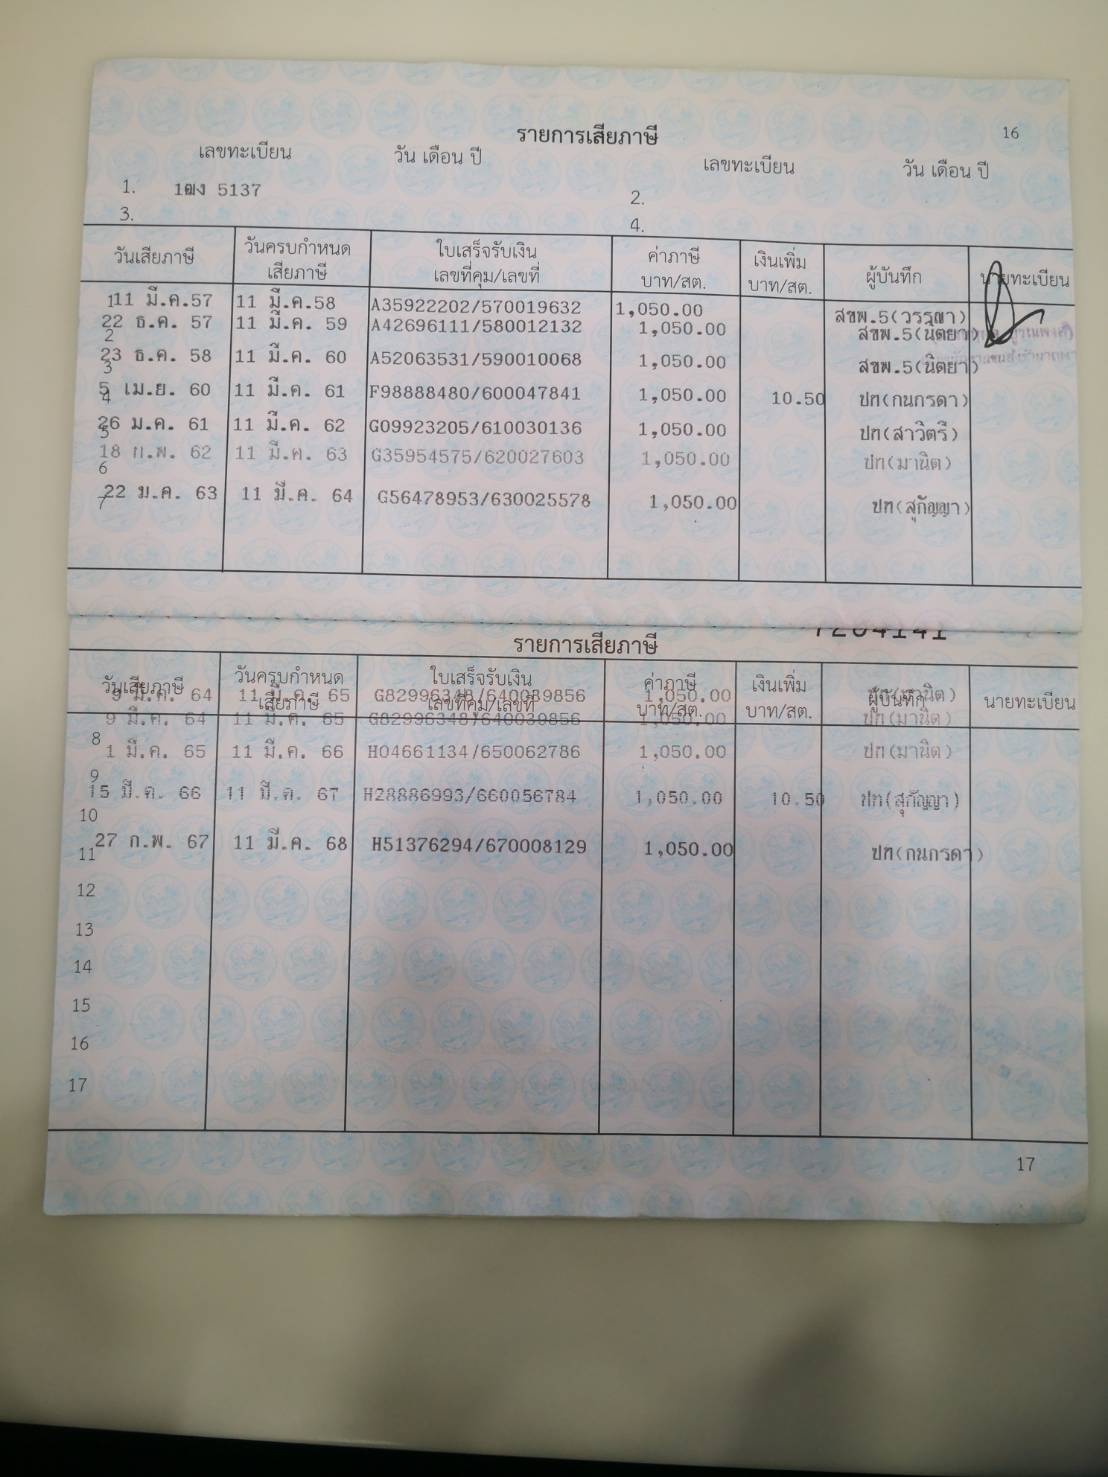 รายการเสียภาษี 16
เลขทะเบียน วัน เดือน ปี เลขทะเบียน วัน เดือน ปี
1. 1ฒง 5137 2.
3. 4.
วันเสียภาษี วันครบกำหนด เสียภาษี ใบเสร็จรับเงิน เลขที่คุม/เลขที่ ค่าภาษี บาท/สต. เงินเพิ่ม บาท/สต. ผู้บันทึก นายทะเบียน
1 11 มี.ค.57 11 มี.ค.58 A35922202/570019632 1,050.00 สขพ.5(วรรณา)
2 22 ธ.ค. 57 11 มี.ค. 59 A42696111/580012132 1,050.00 สขพ.5(นิตยา)
3 23 ธ.ค. 58 11 มี.ค. 60 A52063531/590010068 1,050.00 สขพ.5(นิตยา)
4 5 เม.ย. 60 11 มี.ค. 61 F98888480/600047841 1,050.00 10.50 ปท(กนกรดา)
5 26 ม.ค. 61 11 มี.ค. 62 G09923205/610030136 1,050.00 ปท(สาวิตรี)
6 18 ก.พ. 62 11 มี.ค. 63 G35954575/620027603 1,050.00 ปท(มานิต)
7 22 ม.ค. 63 11 มี.ค. 64 G56478953/630025578 1,050.00 ปท(สุกัญญา)
รายการเสียภาษี
วันเสียภาษี วันครบกำหนด เสียภาษี ใบเสร็จรับเงิน เลขที่คุม/เลขที่ ค่าภาษี บาท/สต. เงินเพิ่ม บาท/สต. ผู้บันทึก นายทะเบียน
9 มี.ค. 64 11 มี.ค. 65 G82996348/640039856 1,050.00 ปท(มานิต)
9 มี.ค. 64 11 มี.ค. 65 G82996348/640039856 1,050.00 ปท(มานิต)
8 1 มี.ค. 65 11 มี.ค. 66 H04661134/650062786 1,050.00 ปท(มานิต)
9 15 มี.ค. 66 11 มี.ค. 67 H28886993/660056784 1,050.00 10.50 ปท(สุกัญญา)
10
11 27 ก.พ. 67 11 มี.ค. 68 H51376294/670008129 1,050.00 ปท(กนกรดา)
12
13
14
15
16
17
17